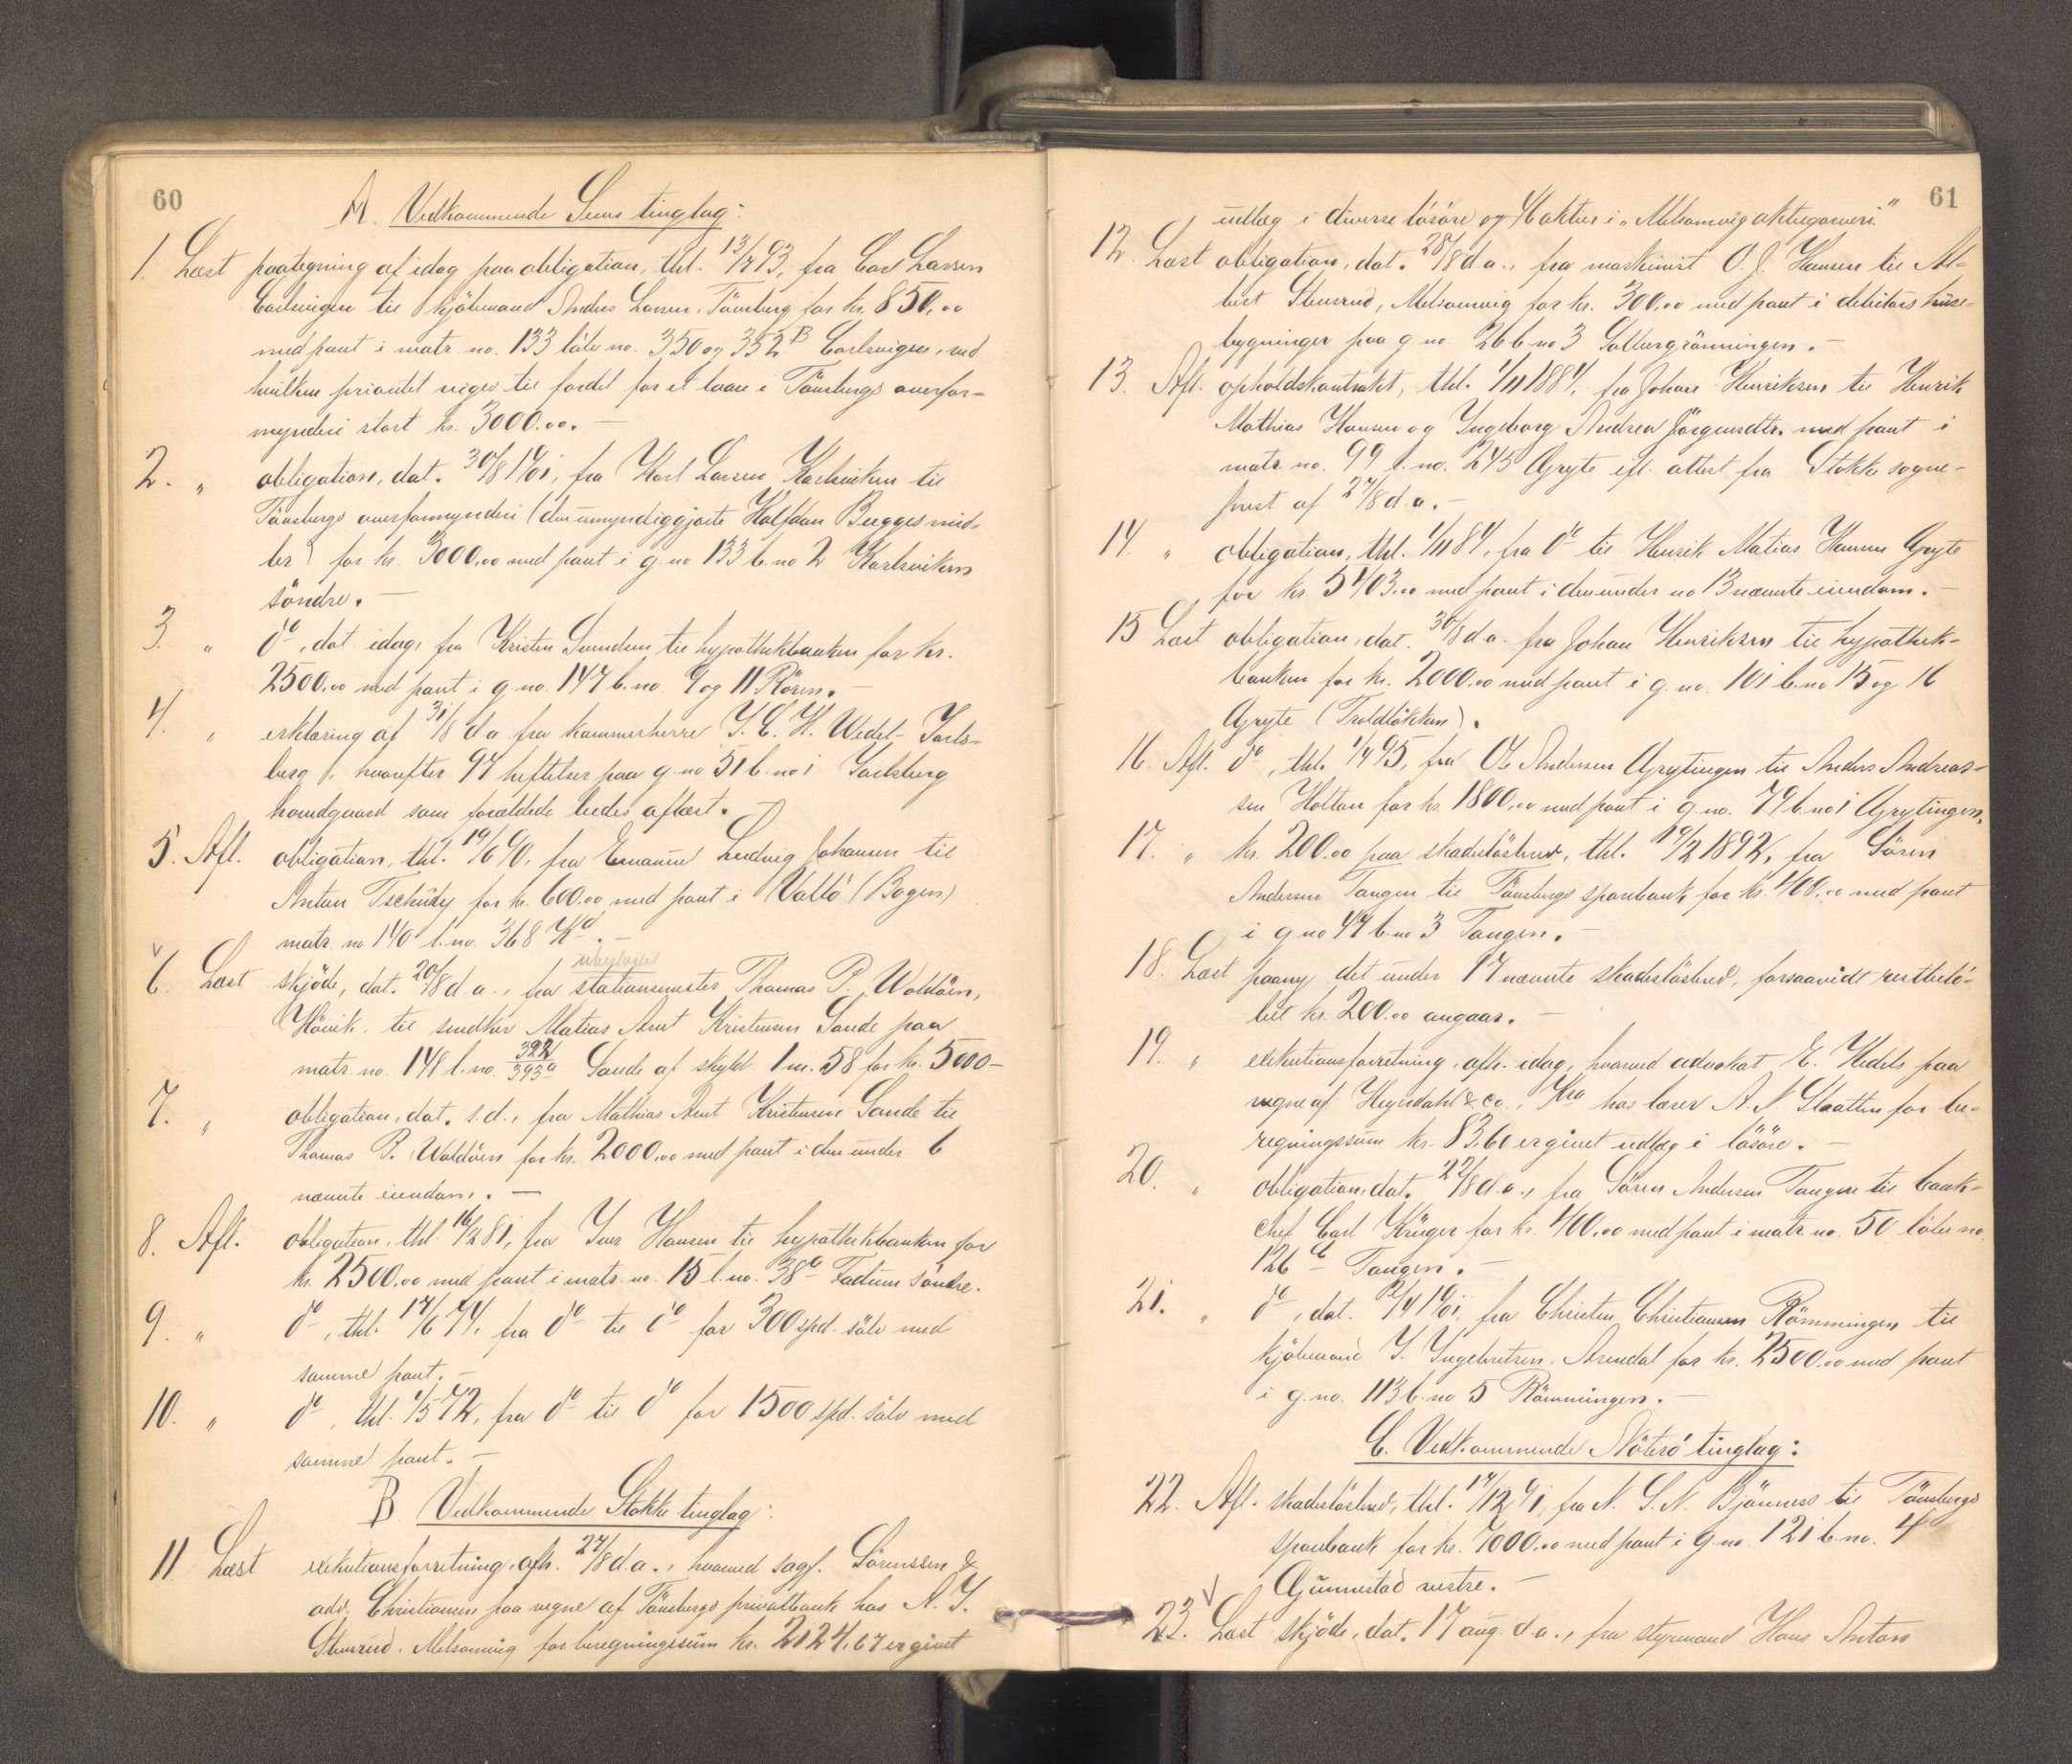 60
A. Vedkommende Sems tinglag:
1. Læst paategning af idag paa obligation, thl. 13/7 93, fra Carl Larsen
Carlsvigen til kjöbmand Anders Larsen, Tönsberg for kr. 850,00
med pant i matr. no. 133 löbe no. 350 og 352 B Carlsvigen, ved
hvilken prioritet viges til fordel for et laan i Tönsbergs overfor-
mynderi stort kr. 3000.00. —
2. „ obligation, dat. 30/8 1901, fra Karl Larsen Karlsviken til
Tönsbergs overformynderi (den umyndiggjorte Halfdan Bugges mid-
ler) for kr. 3000,00 med pant i g. no 133 b. no 2 Karlsviken
söndre. —
3. „ do, dat. idag, fra Kristen Svendsen til hypothekbanken for kr.
2500,00 med pant i g. no. 147 b. no. 9 og 11 Rören. —
4. „ erklæring af 31/8 d. a. fra kammerherre P. C. H. Wedel-Jarls-
berg, hvorefter 97 heftelser paa g. no 51 b. no 1 Jarlsberg
hovedgaard som forældede bedes aflæst. —
5. Afl. obligation, thl. 19/6 90, fra Emanuel Ludvig Johansen til
Anton Tschudy for kr. 600.00 med pant i Vallö (Bogen)
matr. no 140 l. no. 368
6. Læst skjöde, dat. 20/8 d. a., fra stationsmester Thomas P. Woldöen,
Hövik, til snedker Matias Amt Kristensen Sande paa
matr. no. 148 l. no. 392/393a Sande af skyld 1 m. 58 for kr. 5000 —
7. „ obligation, dat. s. d., fra Mathias Amt Kristensen Sande til
Thomas P. Woldöen for kr. 2000,00 med pant i den under 6
nævnte eiendom. —
8. Afl. obligation, thl. 16/2 81, fra Iver Hansen til hypothekbanken for
kr. 2500,00 med pant i matr. no. 15 l. no. 38a Fadum söndre.
9. „ do, thl. 17/6 74, fra do til do for 300 spd. sölv med
samme pant. —
10. „ do, thl. 1/5 72, fra do til do for 1500 spd. sölv med
samme pant. —
B Vedkommende Stokke tinglag:
11. Læst exekutionsforretning, afh. 27/8 d. a., hvorved sagf. Sörenssen &
adv. Christiansen paa vegne af Tönsbergs privatbank hos A. J.
Stensrud, Melsomvig for beregningssum kr. 2124,67 er givet
61
udlæg i diverse lösöre og 4 aktier i „Melsomvig aktiegarveri."
12. Læst obligation, dat. 28/8 d. a., fra maskinist O. J. Hansen til Al-
bert Stensrud, Melsomvig for kr. 300,00 med pant i debitors huse-
bygninger paa g. no. 26 b. no 3 Solbergrönningen. —
13. Afl. opholdskontrakt, thl. 1/11 1884, fra Johan Henriksen til Henrik
Mathias Hansen og Ingeborg Andrea Jörgensdtr. med pant i
matr. no. 99 l. no. 245 Gryte ifl. attest fra Stokke sogne-
prest af 27/8 d. a. —
14. „ obligation, thl. 1/11 84, fra do til Henrik Matias Hansen Gryte
for kr. 5403.00 med pant i den under no 13 nævnte eiendom. —
15 Læst obligation, dat. 30/8 d. a. fra Johan Henriksen til hypothek-
banken for kr. 2000.00 med pant i g. no. 101 b. no 15 og 16
Gryte (Troldlökken).
16. Afl. do, thl. 1/4 95, fra Ole Andersen Grytingen til Anders Andreas-
sen Holtan for kr. 1800,00 med pant i g. no. 79 b. no 1 Grytingen.
17. „ kr. 200.00 paa skadeslösbrev, thl. 19/2 1892, fra Sören
Andersen Tangen til Tönsbergs sparebank for kr. 400,00 med pant
i g. no 47 b. no 3 Tangen. —
18. Læst paany det under 17 nævnte skadeslösbrev, forsaavidt restbelö-
bet kr. 200.00 angaar. —
19. „ exekutionsforretning, afh. idag, hvorved advokat E. Hedels paa
vegne af Heyerdahl & co., Kra hos lærer A. N. Slaatten for be-
regningssum kr. 83.60 er givet udlæg i lösöre. —
20. „ obligation, dat. 22/8 d. a., fra Sören Andersen Tangen til bank-
chef Carl Krüger for kr. 400.00 med pant i matr. no. 50 löbe no.
126 Tangen. —
21. „ do, dat. 12/4 1901, fra Christen Christiansen Römmingen til
kjöbmand J. Ingebretsen, Arendal for kr. 2500.00 med pant
i g. no. 113 b. no 5 Römmingen. —
C. Vedkommende Nöterö tinglag:
22. Afl. skadeslösbrev, thl. 17/12 91, fra N. S. N. Bjönness til Tönsbergs
sparebank for kr. 7000.00 med pant i g. no. 121 b. no. 4
Gunnestad vestre. —
23. Læst skjöde, dat. 17 aug. d. a., fra styrmand Hans Anton